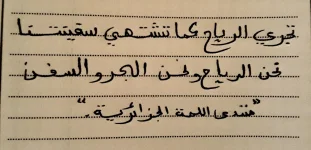 تجري الرياح كما تشتهي سفينتنا
نحن الرياح ونحن البحر والسفن
"منتدى اللمة الجزائرية."